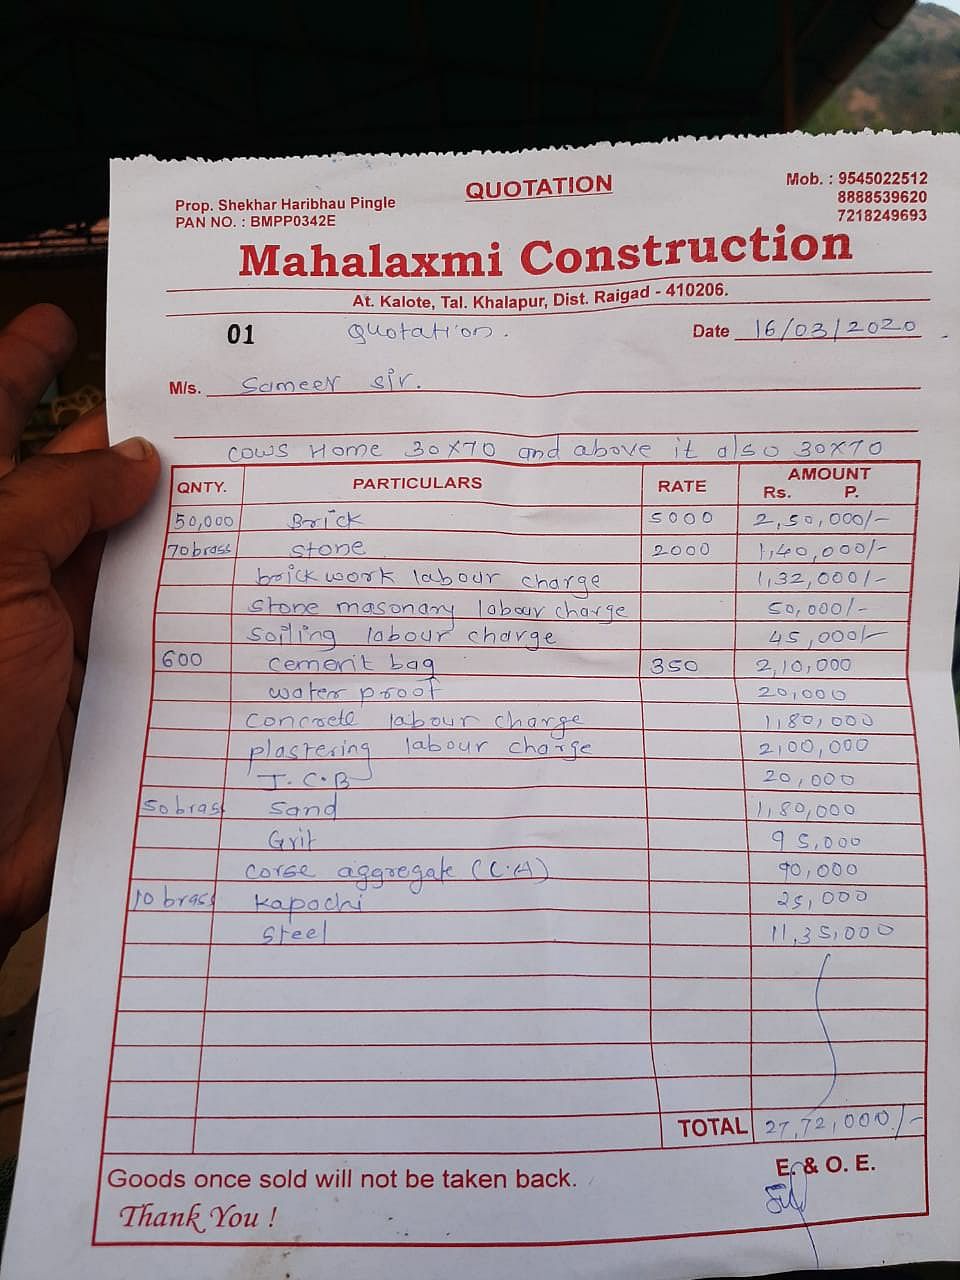 QUOTATION
Prop. Shekhar Haribhau Pingle
PAN NO. : BMPP0342E
Mob. : 9545022512
8888539620
7218249693
Mahalaxmi Construction
At. Kalote, Tal. Khalapur, Dist. Raigad - 410206.
01 Quotation. Date 16/03/2020
M/s. Sameer sir.
cows Home 30x70 and above it also 30x70
QNTY. PARTICULARS RATE AMOUNT Rs. P.
50,000 Brick 5000 2,50,000/-
70 brass stone 2000 1,40,000/-
brick work labour charge 1,32,000/-
stone masonary labour charge 50,000/-
soiling labour charge 45,000/-
600 cement bag 350 2,10,000
water proof 20,000
concrete labour charge 1,80,000
plastering labour charge 2,00,000
J.C.B 20,000
50 brass sand 1,80,000
Grit 95,000
corse aggregate (C.A) 90,000
10 brass kapachi 25,000
steel 11,35,000
TOTAL 27,72,000/-
Goods once sold will not be taken back.
E. & O. E.
Thank You !